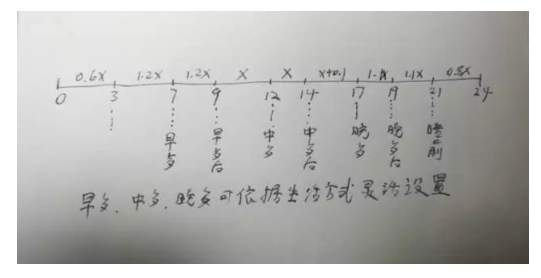 0.6X 1.2X 1.2X X X X+0.1 1.1X 1.1X 0.8X
0 3 7 9 12 14 17 19 21 24
早多 早多后 中多 中多后 晚多 晚多后 睡前
早多、中多、晚多可依据生活方式灵活设置